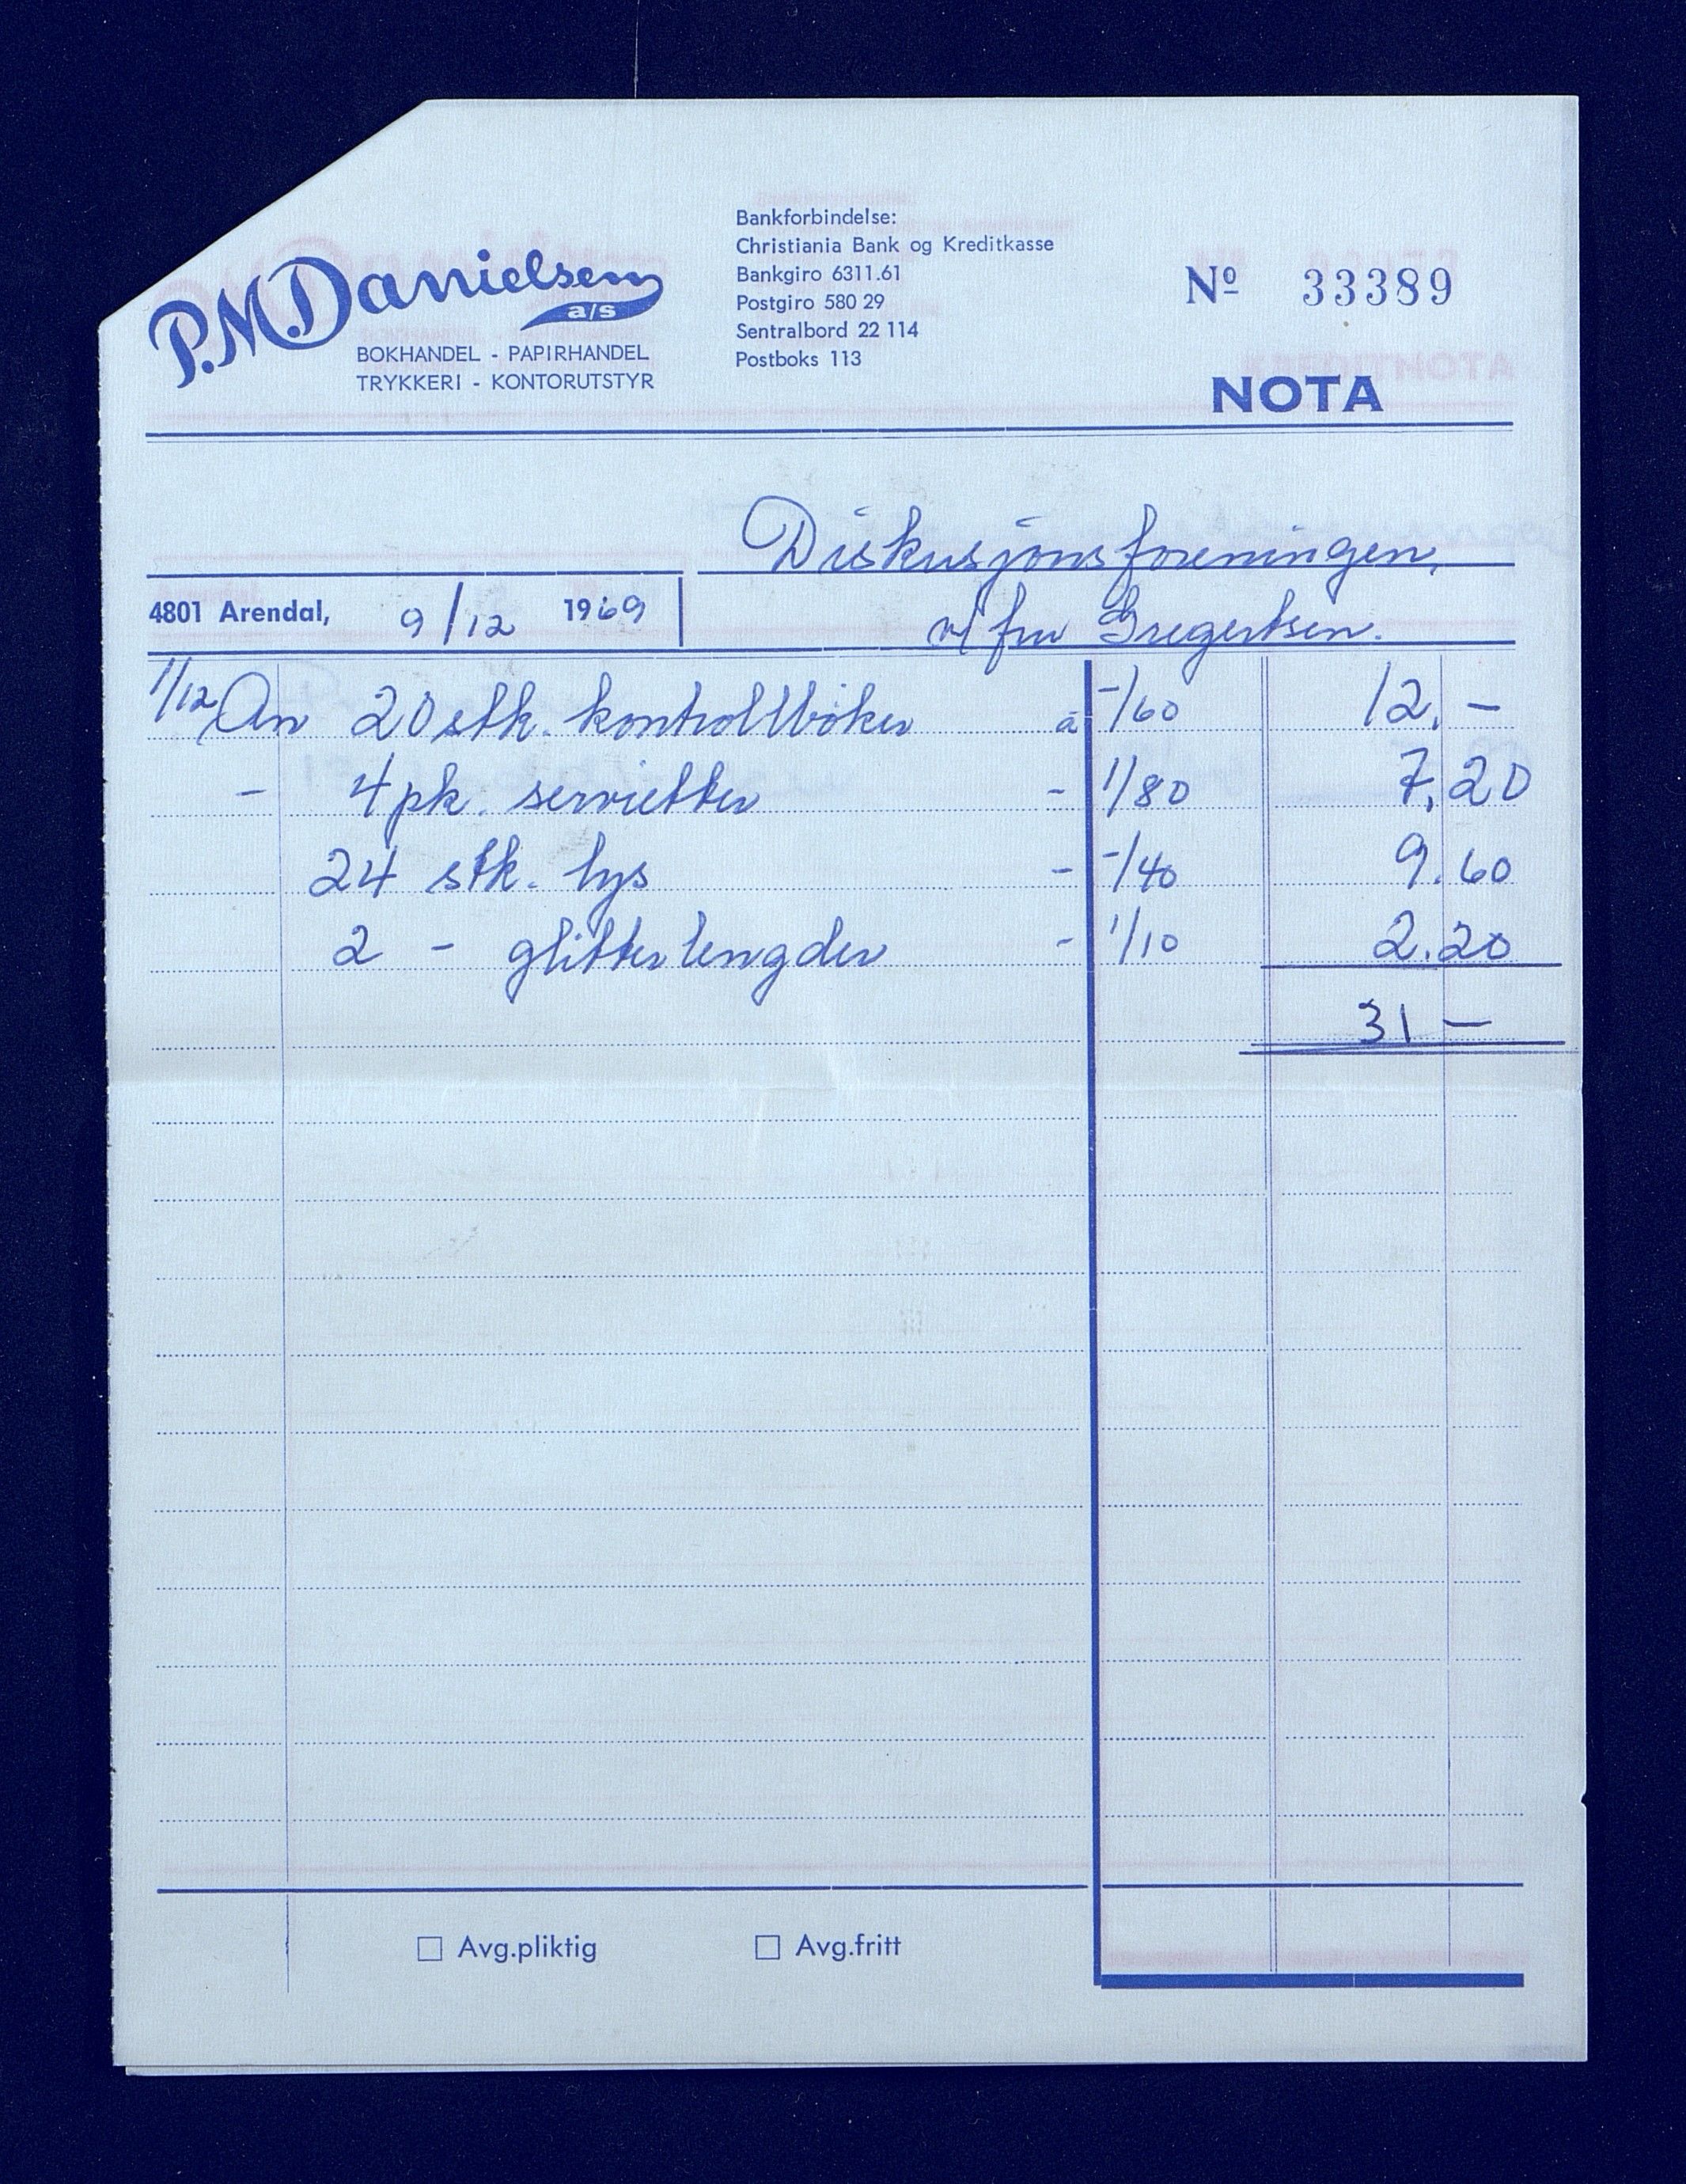 P.M. Danielsen a/s
BOKHANDEL - PAPIRHANDEL
TRYKKERI - KONTORUTSTYR
Bankforbindelse:
Christiania Bank og Kreditkasse
Bankgiro 6311.61
Postgiro 580 29
Sentralbord 22 114
Postboks 113
Nº 33389
NOTA
Diskusjonsforeningen,
v/ fru Gregertsen.
4801 Arendal, 9/12 1969
1/12 An 20 stk. kontrollbøker à -/60 12, -
- 4 pk. servietter - 1/80 7,20
24 stk. lys - -/40 9.60
2 - glitterlengder - 1/10 2.20
31 -
Avg.pliktig Avg.fritt